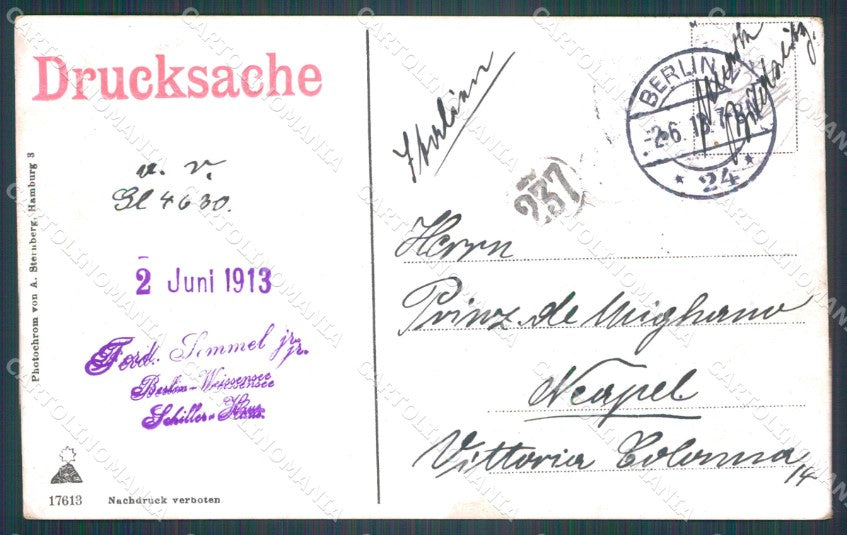 Drucksache
Gl 4630.
2 Juni 1913
Ferd. Simmel jr.
Berlin-Weissensee
Schiller-Haus
Photochrom von A. Sternberg, Hamburg 3
17613
Nachdruck verboten
Italien
BERLIN
2.6.13.7-8
* 24 *
237
Herrn
Prinz de Mighano
Neapel
Vittoria Colonna
14
CARTOLINOMANIA